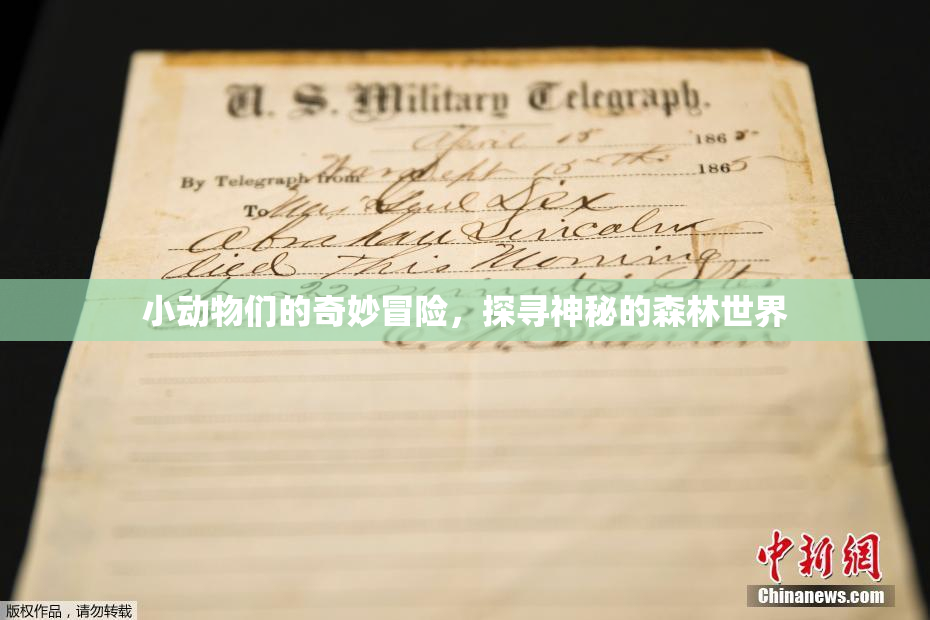 U. S. Military Telegraph.
April 15 1865
By Telegraph from War Dept 15th 1865
To Maj Genl Dix
Abraham Lincoln
died This Morning
22 minutes after
小动物们的奇妙冒险，探寻神秘的森林世界
E. M. Stanton
中新网
Chinanews.com
版权作品，请勿转载